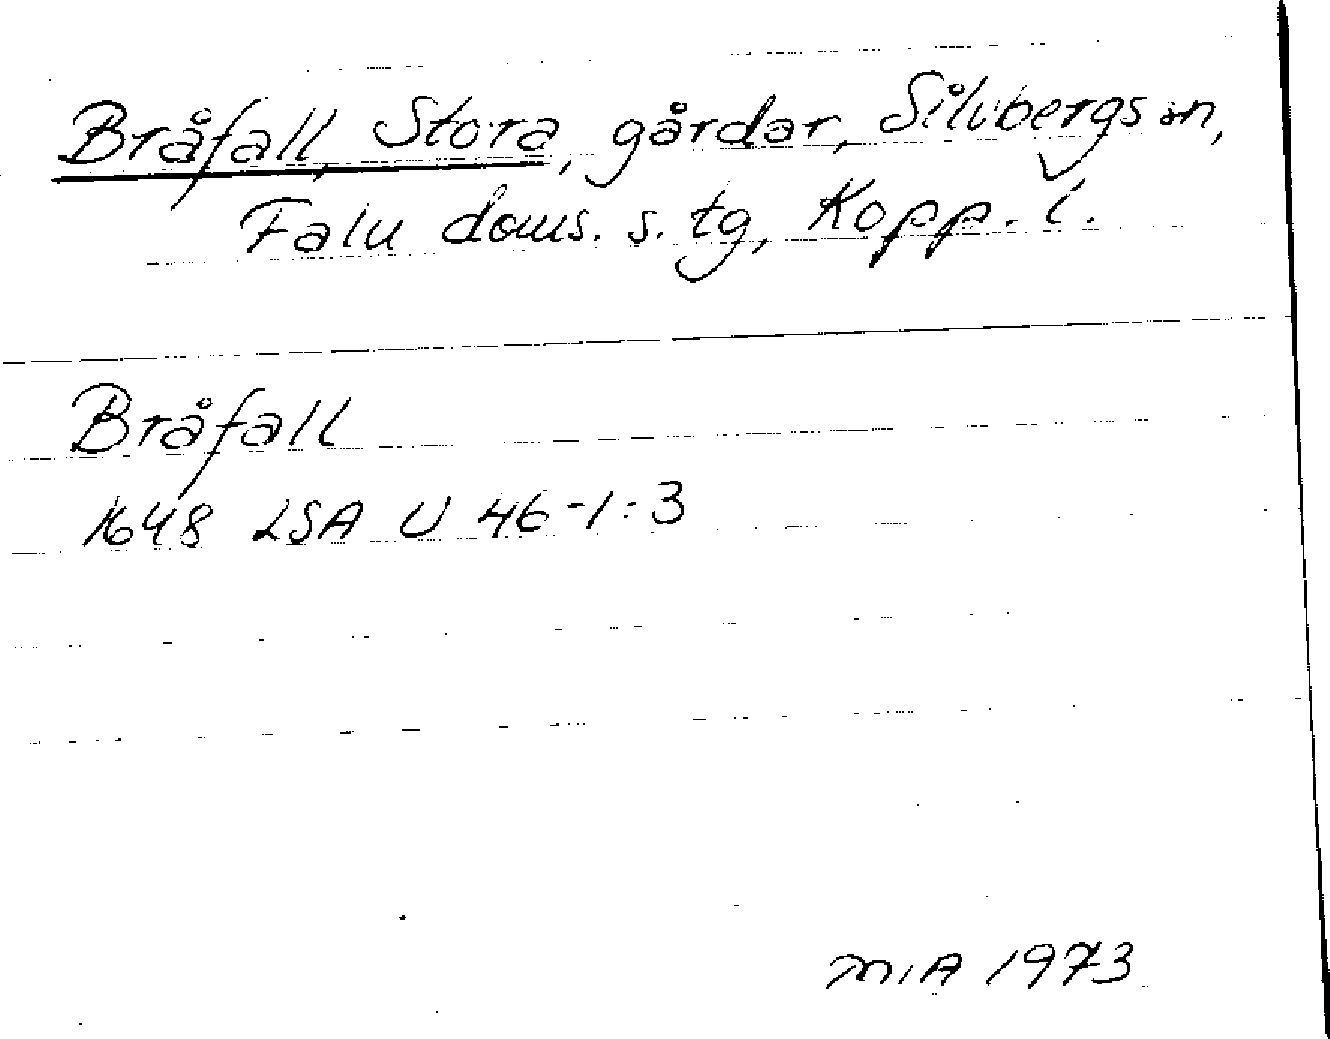 Bråfall, Stora, gårdar, Silvbergs sn,
Falu doms. s. tg, Kopp. l.
Bråfall
1648 LSA U 46-1:3
MIA 1973